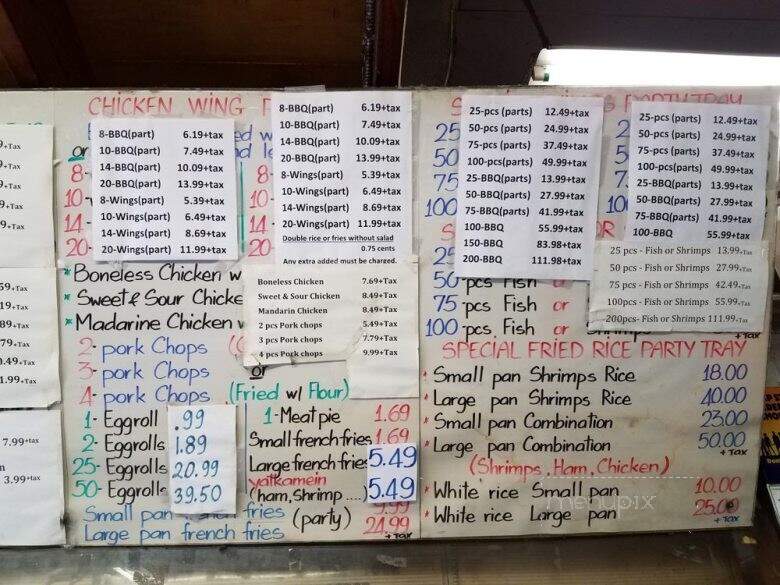 9.+Tax
9.+Tax
9.+Tax
9.+Tax
59.+Tax
19.+Tax
89.+Tax
79.+Tax
0.49.+Tax
1.99.+Tax
7.99+tax
3.99+tax
CHICKEN WING
or
8-
10-
14-
20-
8-BBQ(part) 6.19+tax
10-BBQ(part) 7.49+tax
14-BBQ(part) 10.09+tax
20-BBQ(part) 13.99+tax
8-Wings(part) 5.39+tax
10-Wings(part) 6.49+tax
14-Wings(part) 8.69+tax
20-Wings(part) 11.99+tax
8-
10-
14-
20-
8-BBQ(part) 6.19+tax
10-BBQ(part) 7.49+tax
14-BBQ(part) 10.09+tax
20-BBQ(part) 13.99+tax
8-Wings(part) 5.39+tax
10-Wings(part) 6.49+tax
14-Wings(part) 8.69+tax
20-Wings(part) 11.99+tax
Double rice or fries without salad
0.75 cents
Any extra added must be charged.
* Boneless Chicken w
* Sweet & Sour Chicke
* Madarine Chicken w
Boneless Chicken 7.69+Tax
Sweet & Sour Chicken 8.49+Tax
Mandarin Chicken 8.49+Tax
2 pcs Pork chops 5.49+Tax
3 pcs Pork chops 7.79+Tax
4 pcs Pork chops 9.99+Tax
2- pork Chops
3- pork Chops or
4- pork Chops (Fried w/ Flour)
1- Eggroll .99
2- Eggrolls 1.89
25- Eggrolls 20.99
50- Eggrolls 39.50
1-Meat pie 1.69
Small french fries 1.69
Large french fries 5.49
yatkamein
(ham, shrimp ....) 5.49
Small pan french fries
Large pan french fries (party) 24.99
+Tax
PARTY TRAY
25
50
75
100
25-pcs (parts) 12.49+tax
50-pcs (parts) 24.99+tax
75-pcs (parts) 37.49+tax
100-pcs(parts) 49.99+tax
25-BBQ(parts) 13.99+tax
50-BBQ(parts) 27.99+tax
75-BBQ(parts) 41.99+tax
100-BBQ 55.99+tax
150-BBQ 83.98+tax
200-BBQ 111.98+tax
25-pcs (parts) 12.49+tax
50-pcs(parts) 24.99+tax
75-pcs(parts) 37.49+tax
100-pcs(parts) 49.99+tax
25-BBQ(parts) 13.99+tax
50-BBQ(parts) 27.99+tax
75-BBQ(parts) 41.99+tax
100-BBQ 55.99+tax
OR
25 pcs - Fish or Shrimps 13.99+Tax
50 pcs - Fish or Shrimps 27.99+Tax
75 pcs - Fish or Shrimps 42.49+Tax
100pcs - Fish or Shrimps 55.99+Tax
200pcs- Fish or Shrimps 111.99+Tax
25
50-pcs Fish or
75-pcs Fish or
100-pcs Fish or Shrimps
+Tax
SPECIAL FRIED RICE PARTY TRAY
* Small pan Shrimps Rice 18.00
* Large pan Shrimps Rice 40.00
* Small pan Combination 23.00
* Large pan Combination 50.00
+Tax
(Shrimps, Ham, Chicken)
* White rice Small pan 10.00
* White rice Large pan 25.00
+Tax
menupix